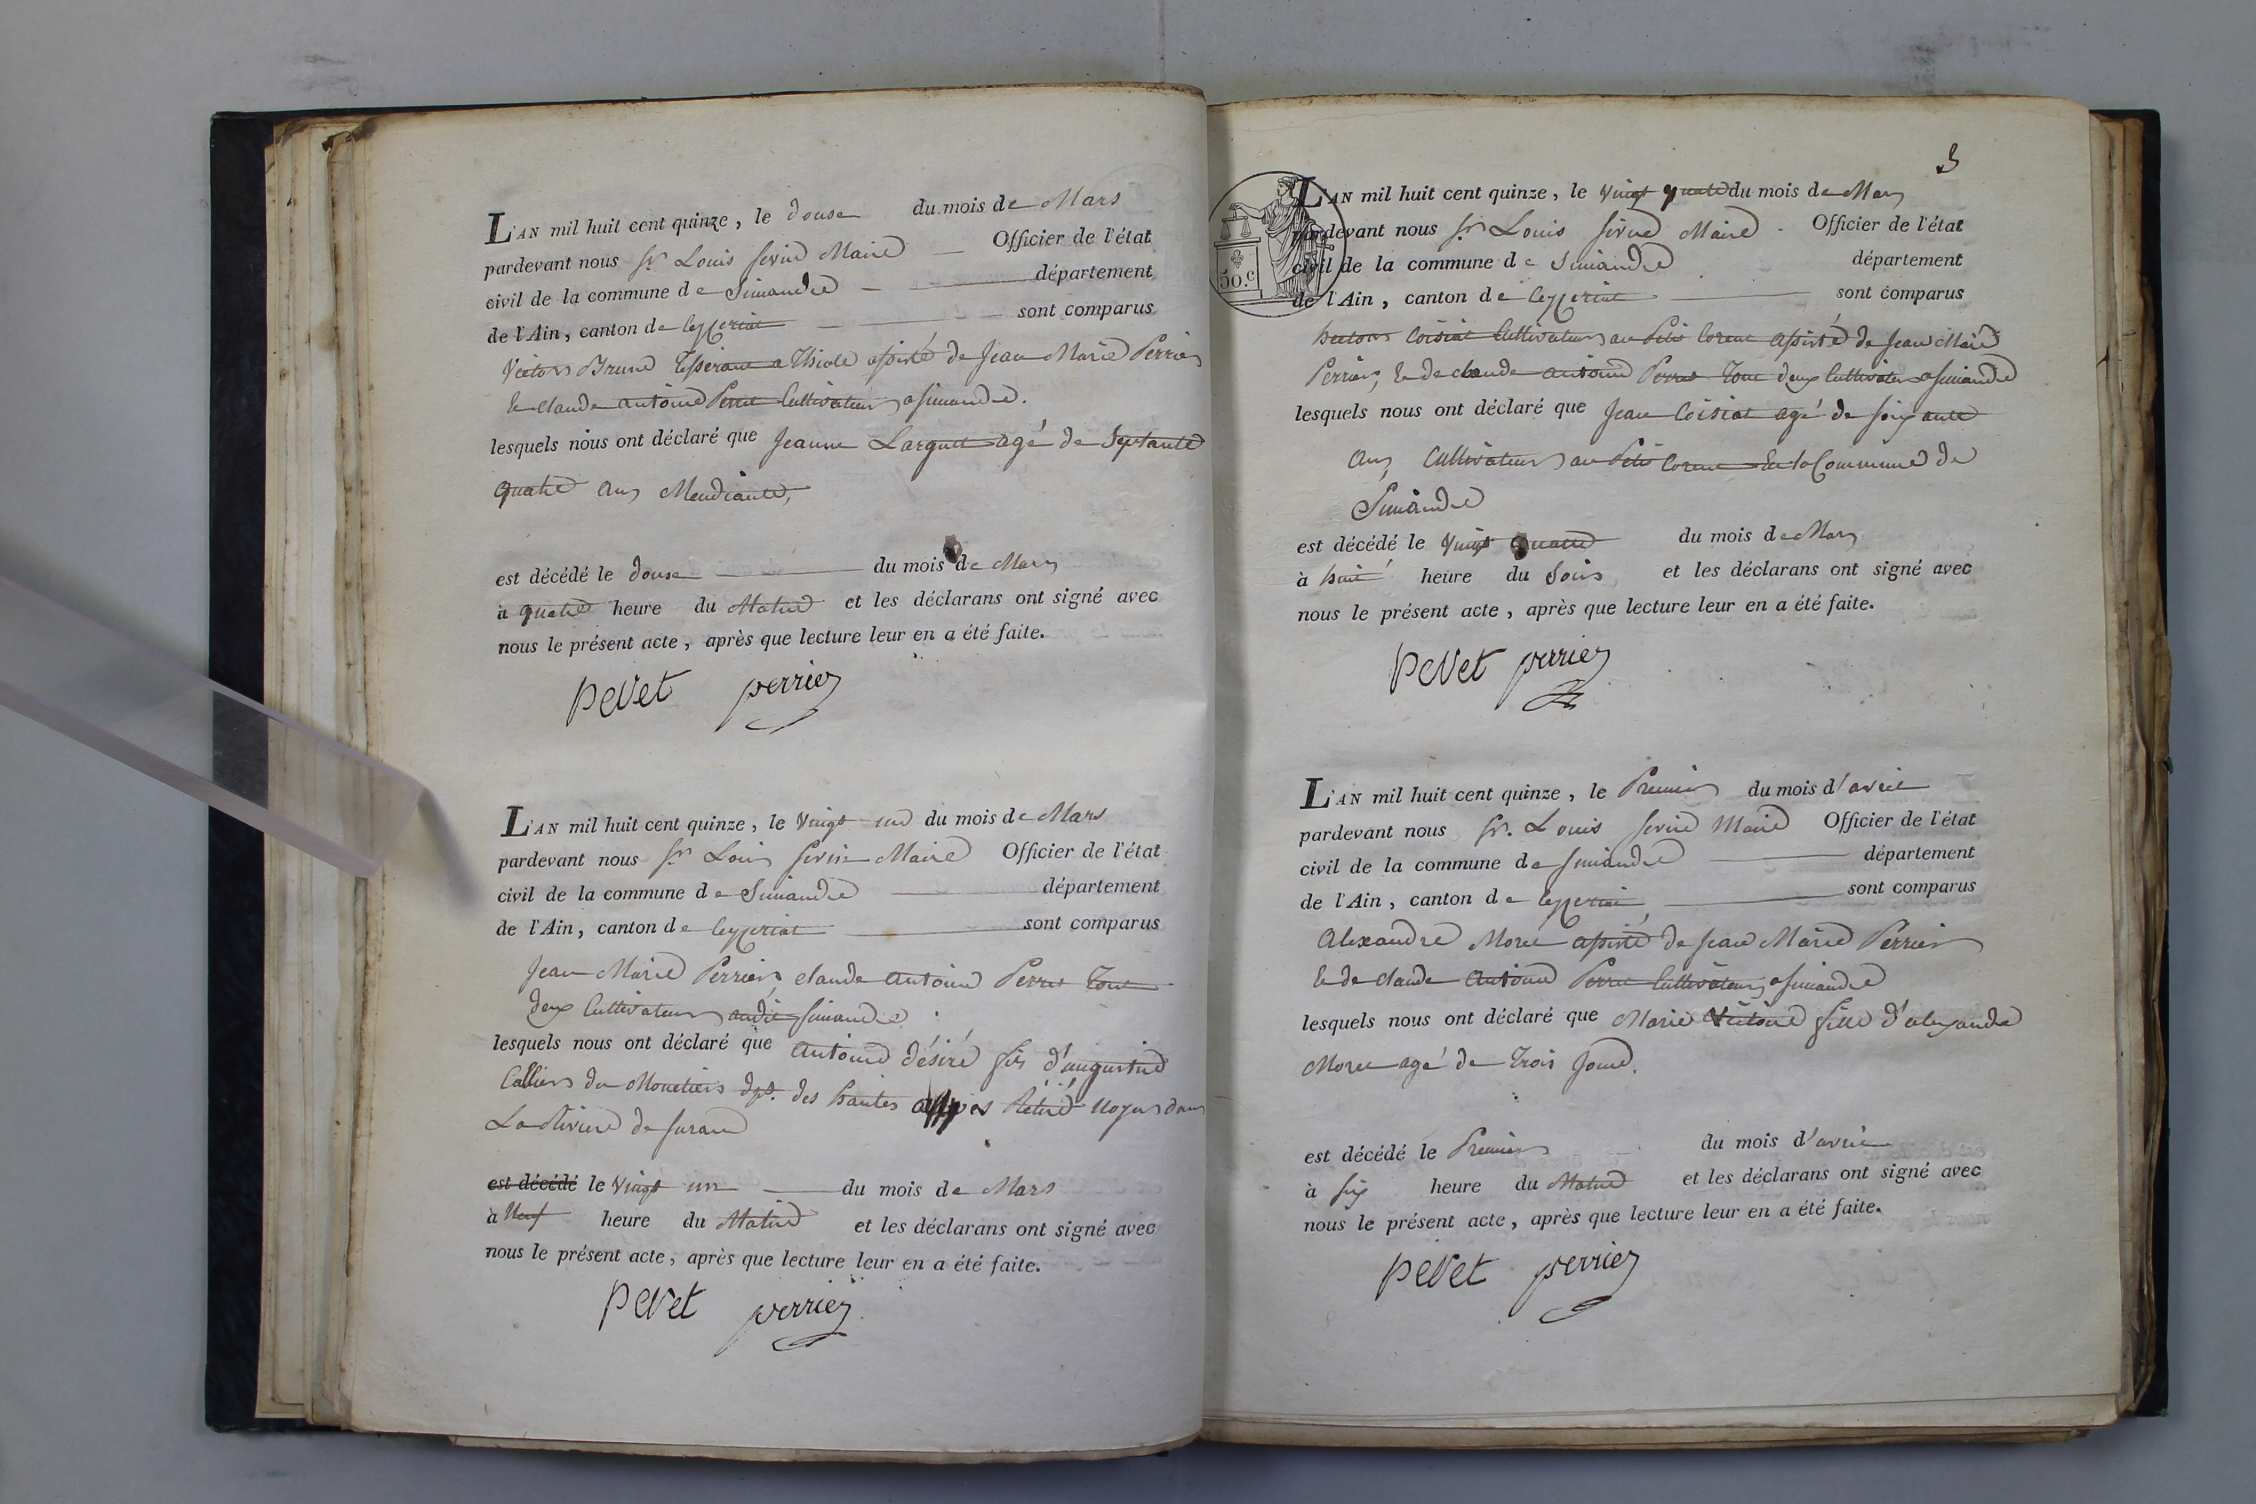 L'AN mil huit cent quinze, le douse du mois de Mars
pardevant nous Sr. Louis Servie Maire Officier de l'état
civil de la commune de Simandre département
de l'Ain, canton de Ceyzeriat sont comparus
Victor Brune à Thiole assisté de Jean Marie Perrier
& claude antoine Perret Cultivateur a Simandre.
lesquels nous ont déclaré que Jeanne agé de Septante
quatre ans Mendiante,
est décédé le douse du mois de Mars
à quatre heure du Matin et les déclarans ont signé avec
nous le présent acte, après que lecture leur en a été faite.
peret perrier
L'AN mil huit cent quinze, le vingt un du mois de Mars
pardevant nous Sr Louis Servie Maire Officier de l'état
civil de la commune de Simandre département
de l'Ain, canton de Ceyzeriat sont comparus
Jean Marie Perrier, claude antoine Perret Tout
deux Cultivateur audit Simandre
lesquels nous ont déclaré que antoine désiré fils d'augustin
Callier du Monetier dpt. des hautes alpes Retiré noyer dans
La Riviere de Suran
est décédé le vingt un du mois de Mars
à Neuf heure du Matin et les déclarans ont signé avec
nous le présent acte, après que lecture leur en a été faite.
peret perrier
3
50.c
L'AN mil huit cent quinze, le vingt quatre du mois de Mars
pardevant nous Sr Louis Servie Maire Officier de l'état
civil de la commune de Simandre département
de l'Ain, canton de Ceyzeriat sont comparus
Coisiat Cultivateur au Petit Corent assisté de Jean Marie
Perrier, & de claude antoine Perret Tout deux Cultivateur a Simandre
lesquels nous ont déclaré que Jean Coisiat agé de soixante
ans Cultivateur au Petit Corent Sur la Commune de
Simandre
est décédé le vingt quatre du mois de Mars
à huit heure du Soir et les déclarans ont signé avec
nous le présent acte, après que lecture leur en a été faite.
peret perrier
L'AN mil huit cent quinze, le Premier du mois d'avril
pardevant nous Sr. Louis Servie Maire Officier de l'état
civil de la commune de Simandre département
de l'Ain, canton de Ceyzeriat sont comparus
Alexandre Morel assisté de Jean Marie Perrier
& de claude antoine Perret Cultivateur a Simandre
lesquels nous ont déclaré que Marie Victoire fille d'alexandre
Morel agé de Trois Jour.
est décédé le Premier du mois d'avril
à six heure du Matin et les déclarans ont signé avec
nous le présent acte, après que lecture leur en a été faite.
peret perrier